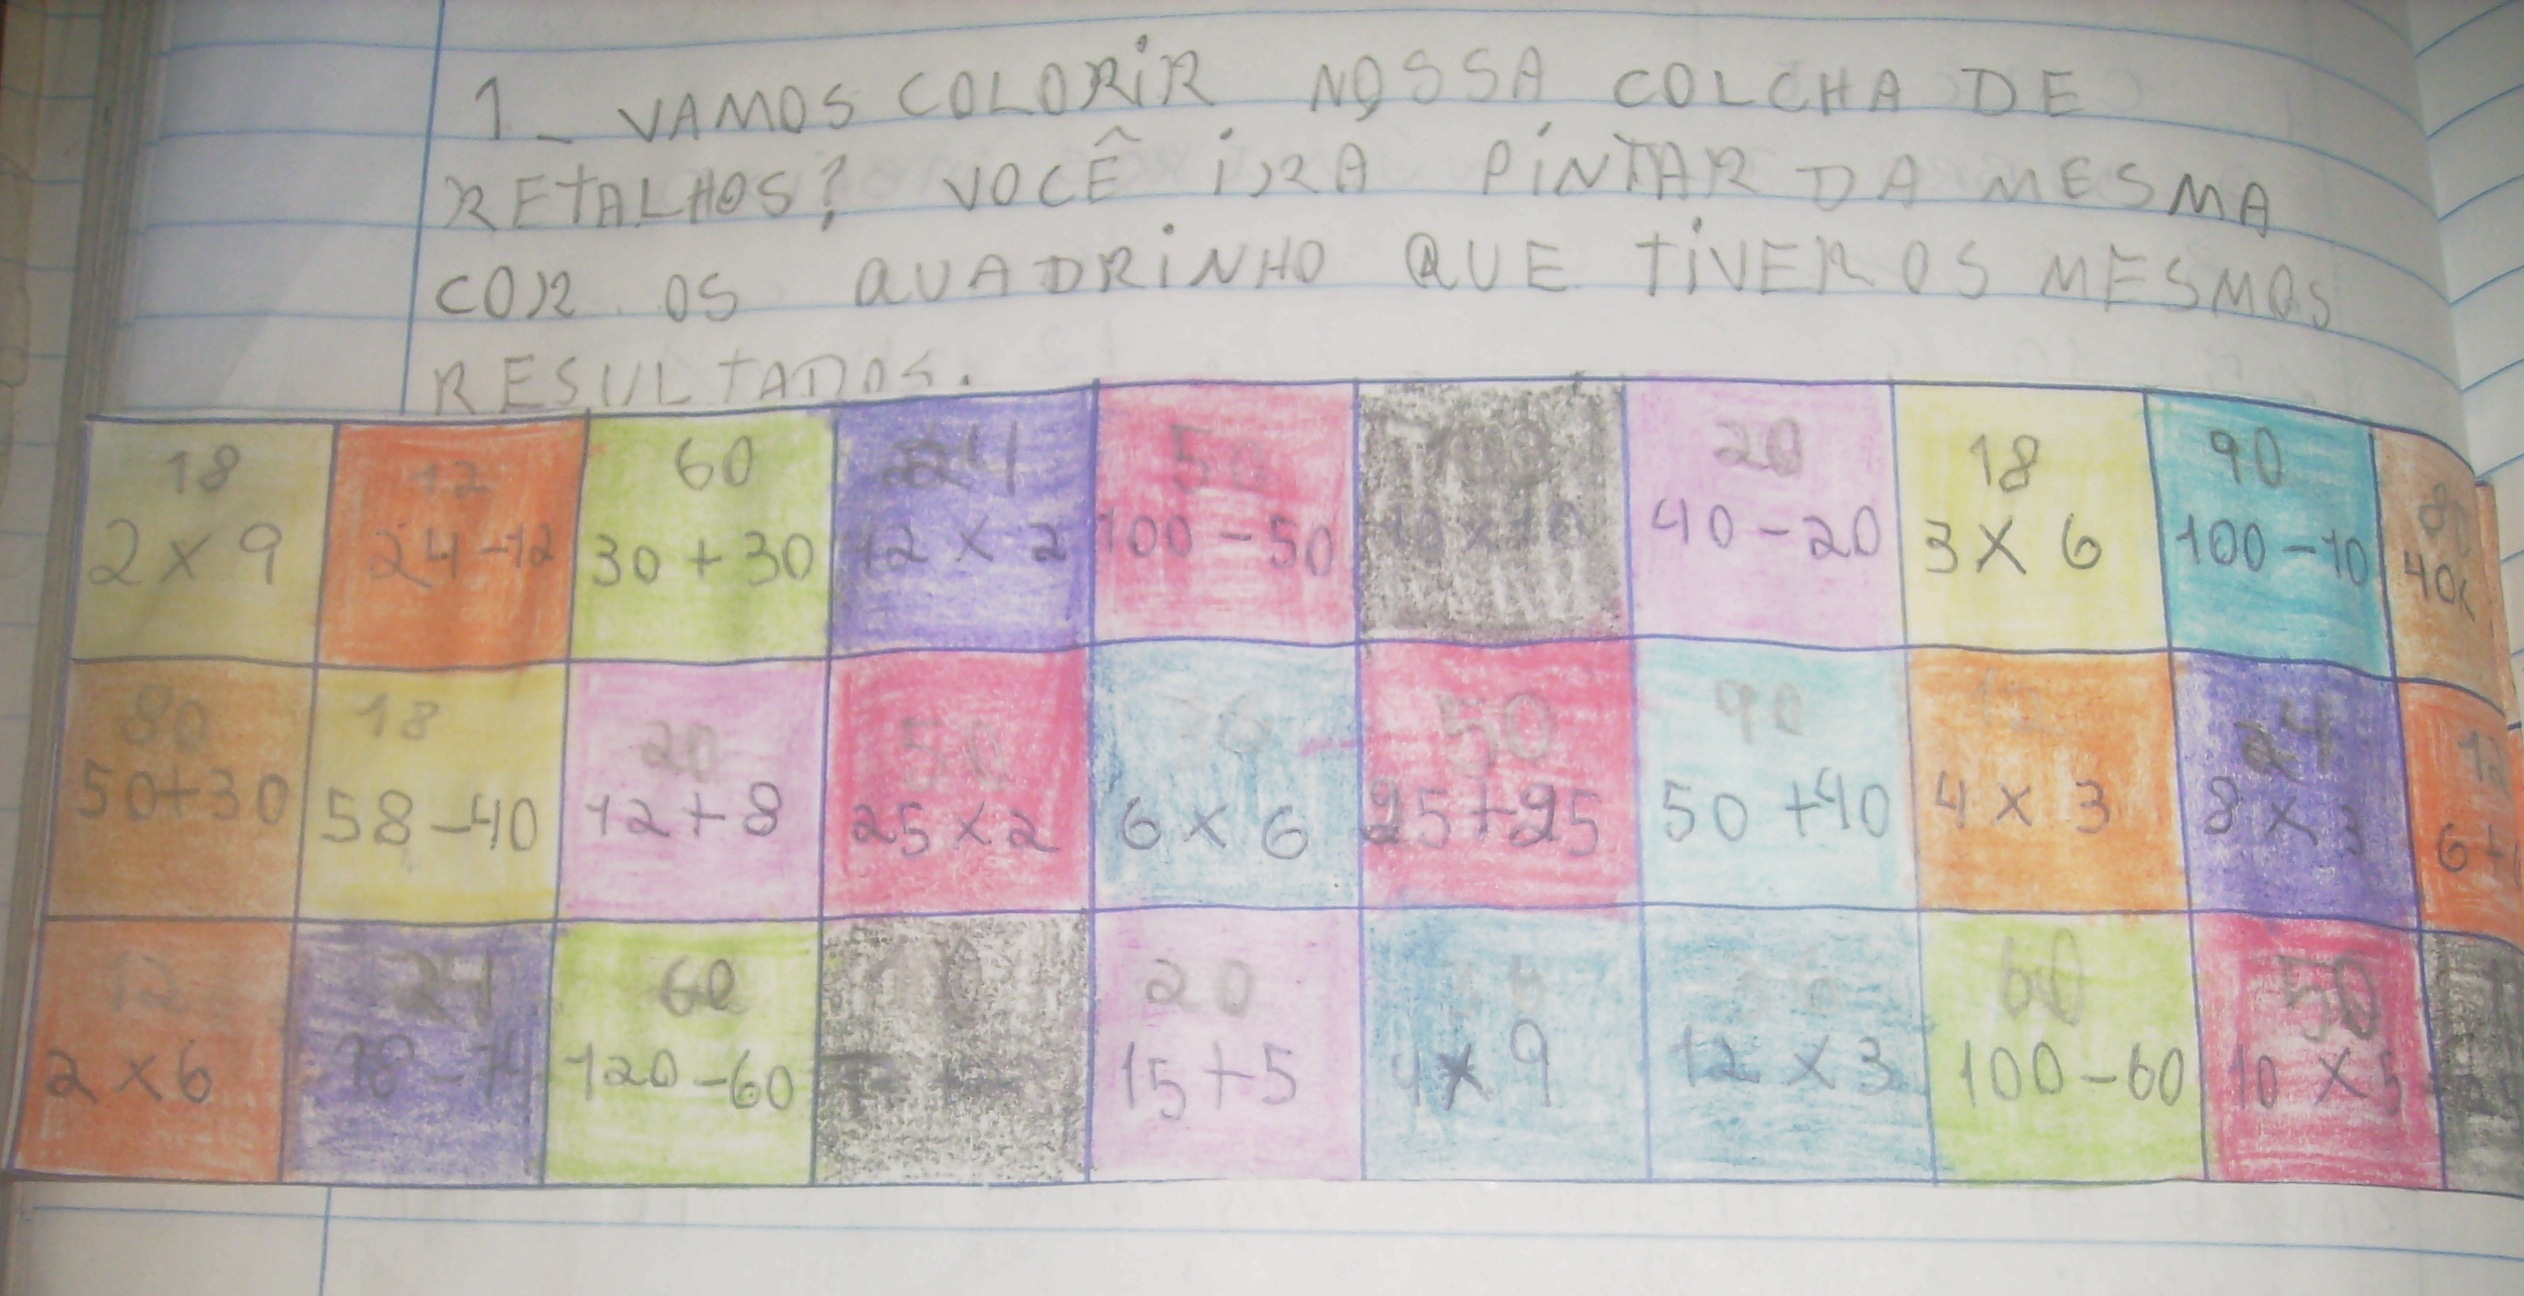 1_ VAMOS COLORiR NOSSA COLCHA DE
RETALHOS? VOCÊ iRA PiNTAR DA MESMA
COR OS QUADRiNHO QUE TiVER OS MESMOS
RESULTADOS.
18 12 60 24 50 100 20 18 90 80
2 x 9 24-12 30 + 30 12 x 2 100 - 50 10 x 10 40 - 20 3 x 6 100 - 10
80 18 20 50 36 50 90 12 24 12
50+30 58 - 40 12 + 8 25 x 2 6 x 6 25 + 25 50 + 40 4 x 3 8 x 3
12 24 60 20 36 36 60 50
2 x 6 120 - 60 15 + 5 4 x 9 12 x 3 100 - 60 10 x 5